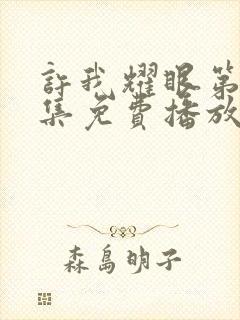 許我耀眼第
集免費播放
森島明子